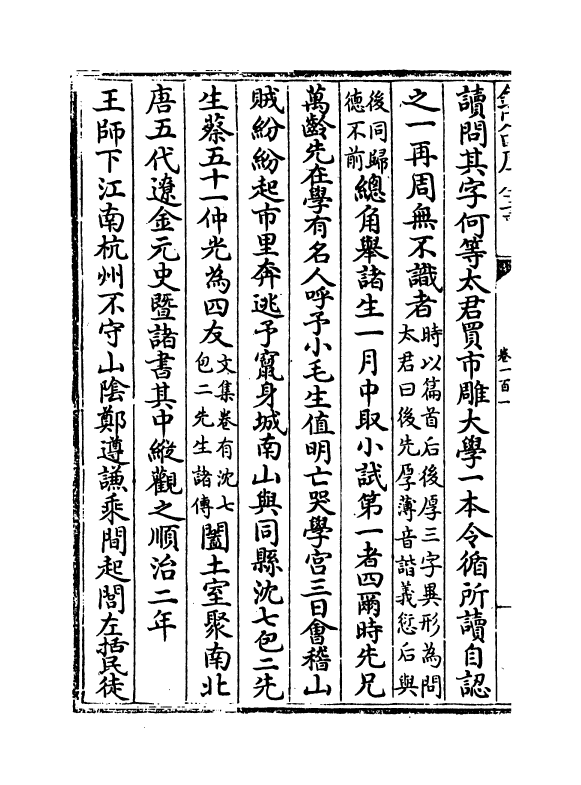 讀問其字何等太君買市雕大學一本令循所讀自認
之一再周無不識者時以篇首后後厚三字異形為問太君曰後先厚薄音諧義愆后與
後同歸德不前總角舉諸生一月中取小試第一者四爾時先兄
萬齡先在學有名人呼予小毛生值明亡哭學宮三日會稽山
賊紛紛起市里奔逃予竄身城南山與同縣沈七包二先
生蔡五十一仲光為四友文集卷有沈七包二先生諧傳闔土室聚南北
唐五代遼金元史暨諸書其中縱觀之順治二年
王師下江南杭州不守山陰鄭遵謙乘間起閭左括民徒
卷一百一